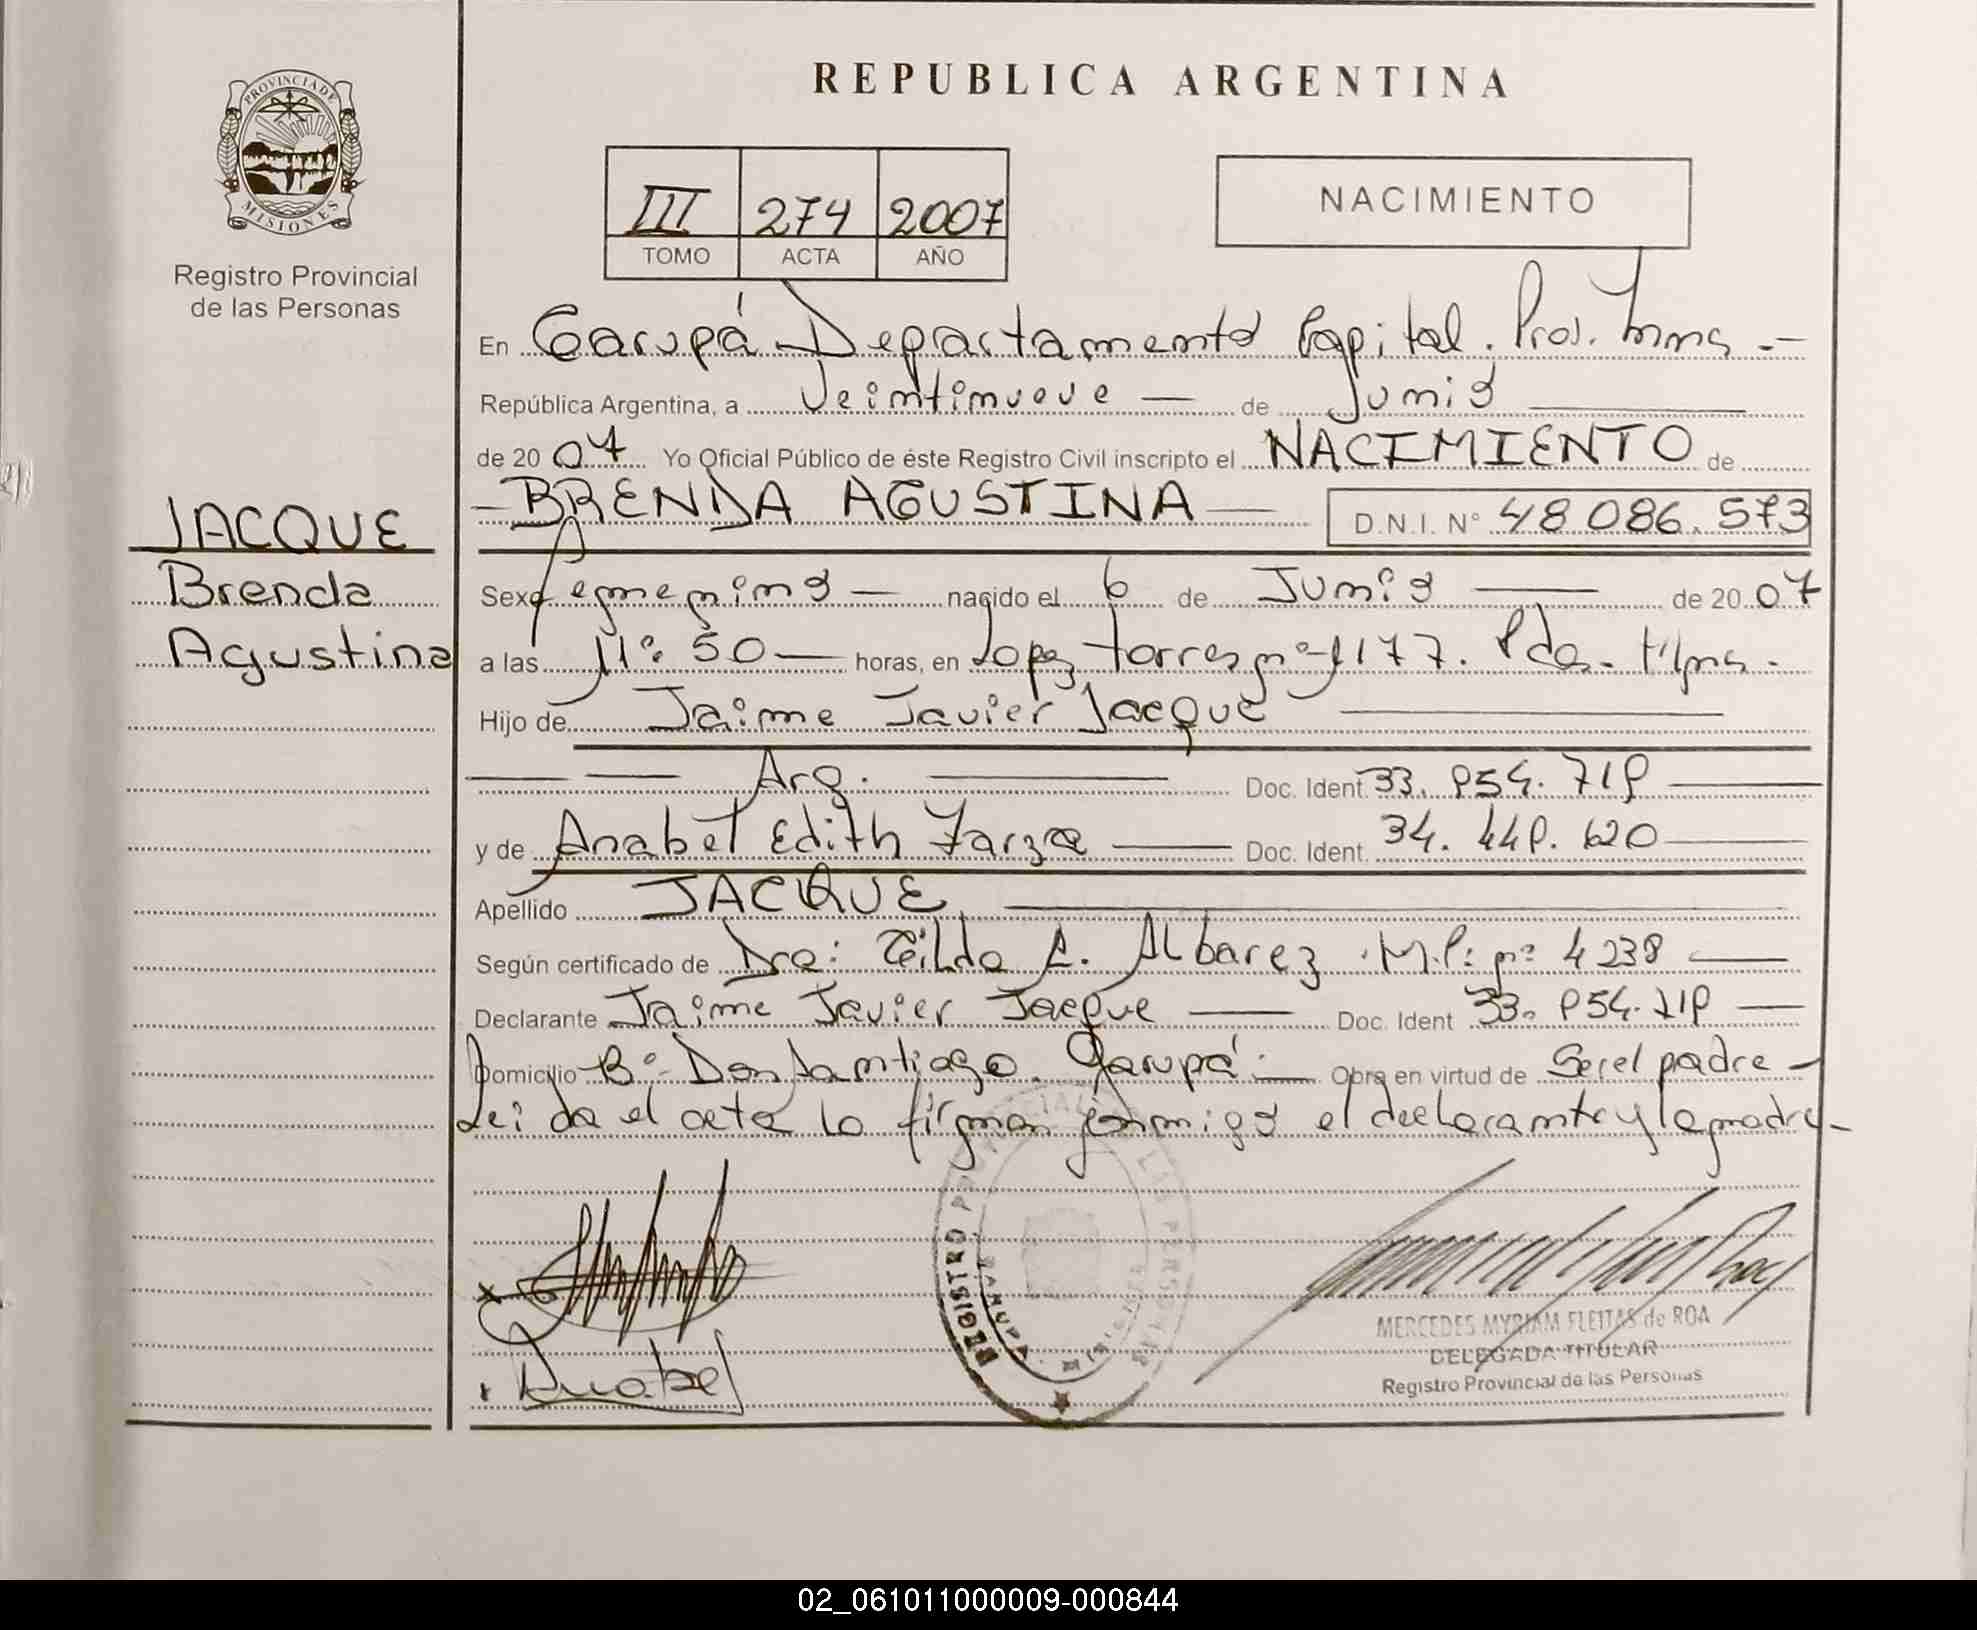 PROVINCIA DE
MISIONES
Registro Provincial
de las Personas
JACQUE
Brenda
Agustina
REPUBLICA ARGENTINA
III 274 2007
TOMO ACTA AÑO
NACIMIENTO
En Garupá Departamento Capital. Prov. Mnes.-
República Argentina, a Veintinueve — de Junio
de 2007 Yo Oficial Público de éste Registro Civil inscripto el NACIMIENTO de
- BRENDA AGUSTINA — D.N.I. Nº 48.086.573
Sexo femenino — nacido el 6 de Junio — de 2007
a las 11:50 — horas, en Lopez Torres nº 1177. Pdas. Mnes.-
Hijo de Jaime Javier Jacque
Arg. Doc. Ident. 33.954.719
y de Anabel Edith Zarza — Doc. Ident. 34.449.620
Apellido JACQUE
Según certificado de Dra: Gilda A. Albarez. M.P: nº 4238
Declarante Jaime Javier Jacque — Doc. Ident 33.954.719
Domicilio Bº Don Santiago. Garupá.- Obra en virtud de Ser el padre -
Leida el acta la firman conmigo el declarante y la madre-
REGISTRO PROVINCIAL DE LAS PERSONAS
GARUPA
MISIONES
x
x Anabel
MERCEDES MYRIAM FLEITAS de ROA
DELEGADA TITULAR
Registro Provincial de las Personas
02_061011000009-000844